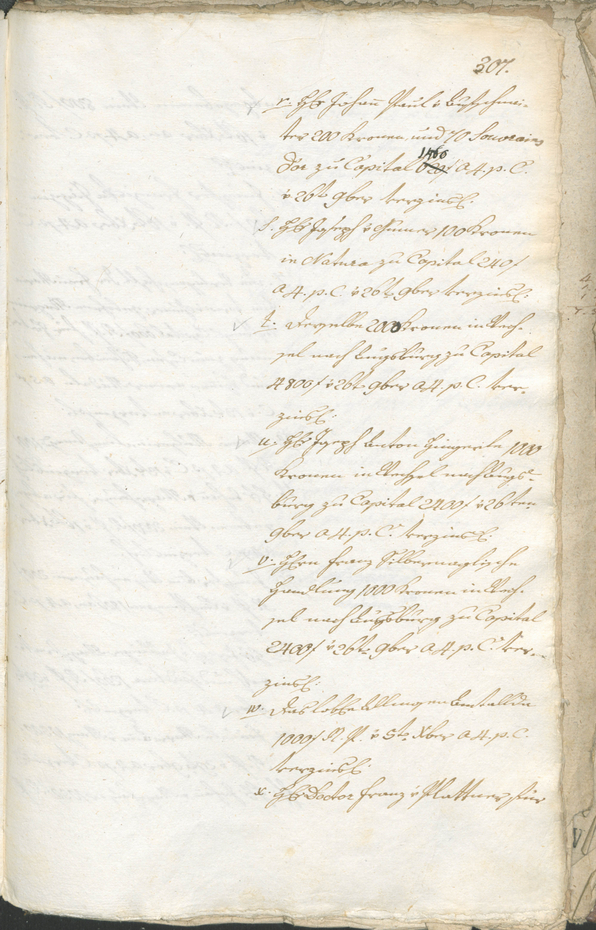 307.
r. Hr Johann Paul v Buschmei-
ter 200 Kronen und 70 Souverains
d'or zu Capital 1460 f a 4. p. C.
v 26t 9ber verzinsl.
s. Hr Joseph v 100 Kronen
in Natura zu Capital 240 f
a 4. p. C. v 26t 9ber verzinsl.
t. Derselbe 2000 Kronen in Wech-
sel nach Augsburg zu Capital
4800 f v 26t 9ber a 4. p. C. ver-
zinsl.
u. Hr Joseph Anton 1000
Kronen in Wechsel nach Augs-
burg zu Capital 2400 f v 26ten
9ber a 4. p. C. verzinsl.
v. Hrn Franz Silbernaglische
Handlung 1000 Kronen in Wech-
sel nach Augsburg zu Capital
2400 f v 26t 9ber a 4. p. C. ver-
zinsl.
w. Das
1000 f R. W. v 5t Xber a 4. p. C.
verzinsl.
x. Hr Doctor Franz v Plattner für